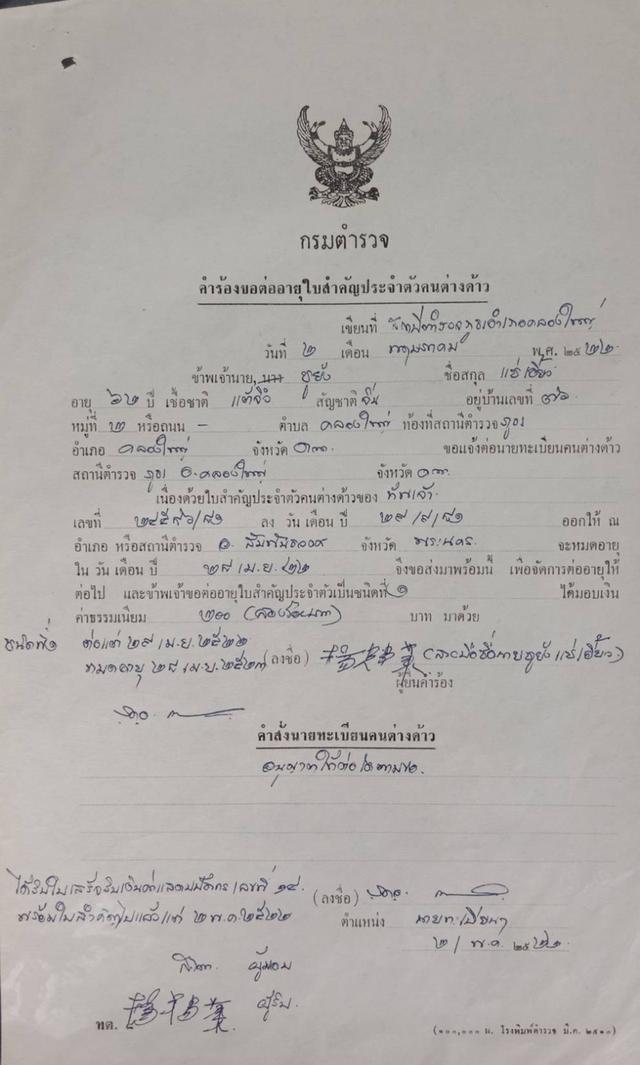 กรมตำรวจ
คำร้องขอต่ออายุใบสำคัญประจำตัวคนต่างด้าว
เขียนที่ สถานีตำรวจภูธรอำเภอคลองใหญ่
วันที่ ๒ เดือน พฤษภาคม พ.ศ. ๒๕๒๒
ข้าพเจ้านาย, นาง ชูยัง ชื่อสกุล แซ่เฮี้ยว
อายุ ๖๒ ปี เชื้อชาติ แต้จิ๋ว สัญชาติ จีน อยู่บ้านเลขที่ ๗๖
หมู่ที่ ๒ หรือถนน - ตำบล คลองใหญ่ ท้องที่สถานีตำรวจ ภูธร
อำเภอ คลองใหญ่ จังหวัด ขอแจ้งต่อนายทะเบียนคนต่างด้าว
สถานีตำรวจ ภูธร อ. คลองใหญ่ จังหวัด
เนื่องด้วยใบสำคัญประจำตัวคนต่างด้าวของ ข้าพเจ้า
เลขที่ ลง วัน เดือน ปี ๒๙/๙/๘๑ ออกให้ ณ
อำเภอ หรือสถานีตำรวจ อ. สัมพันธวงศ์ จังหวัด พระนคร จะหมดอายุ
ใน วัน เดือน ปี ๒๘ เม.ย. ๒๒ จึงขอส่งมาพร้อมนี้ เพื่อจัดการต่ออายุให้
ต่อไป และข้าพเจ้าขอต่ออายุใบสำคัญประจำตัวเป็นชนิดที่ ๑ ได้มอบเงิน
ค่าธรรมเนียม ๒๐๐ (สองร้อยบาท) บาท มาด้วย
ชนิดที่ ๑ ต่อแต่ ๒๙ เม.ย. ๒๕๒๒
หมดอายุ ๒๘ เม.ย. ๒๕๒๓ (ลงชื่อ) (ลายมือชื่อนายชูยัง แซ่เฮี้ยว)
ผู้ยื่นคำร้อง
คำสั่งนายทะเบียนคนต่างด้าว
อนุญาตให้ต่อได้ตามขอ
ได้รับใบเสร็จรับเงิน เลขที่ ๑๔
พร้อมใบสำคัญไปแล้วแต่ ๒ พ.ค. ๒๕๒๒
(ลงชื่อ)
ตำแหน่ง นายทะเบียนฯ
๒ / พ.ค. ๒๕๒๒
ผู้มอบ
ผู้รับ
ทต. ๘
(๑๐๐,๐๐๐ ผ. โรงพิมพ์ตำรวจ มี.ค. ๒๕๑๐)